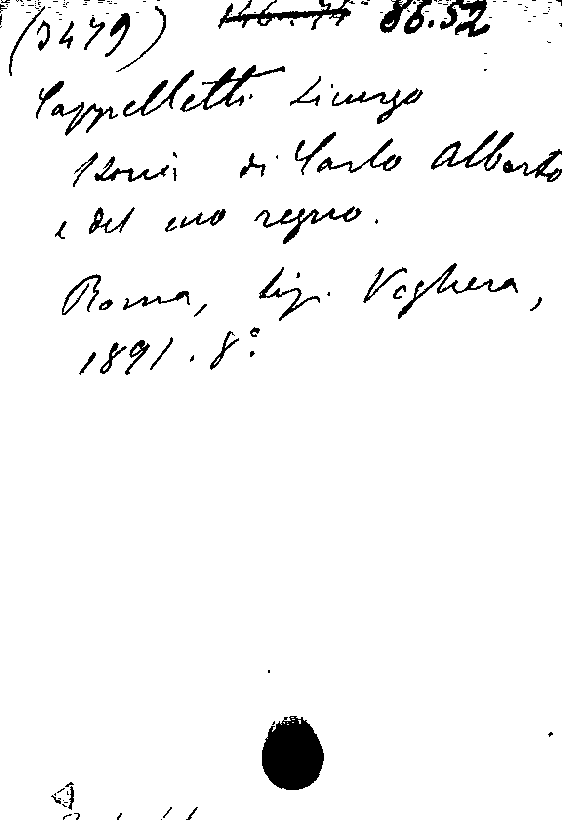 (3479) 146.74 86.52
Cappelletti Licurgo
Storia di Carlo Alberto
e del suo regno.
Roma, tip. Voghera,
1891. 8°.